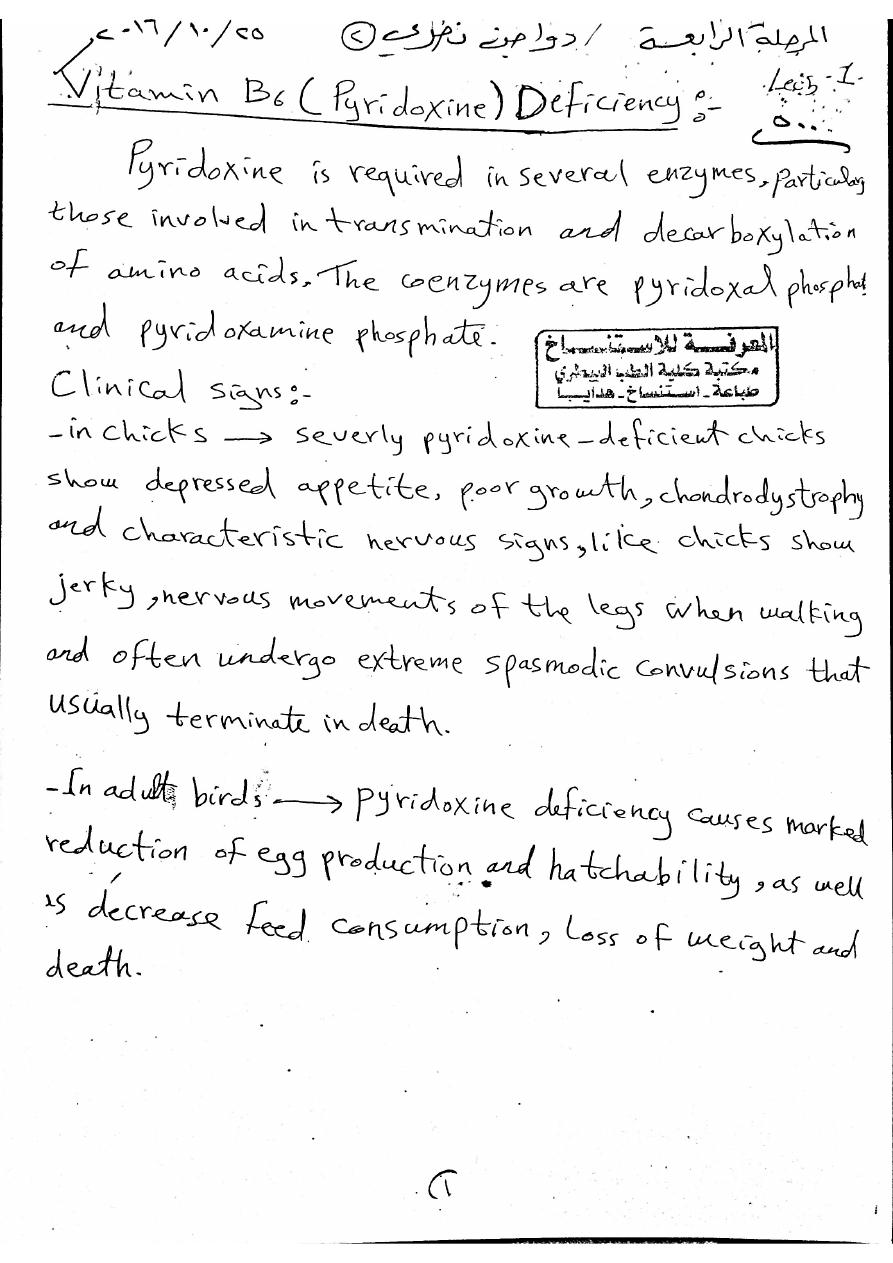 المرحلة الرابعة / دواجن نظري ٢ ٢٠١٦/١٠/٢٥
Vitamin B6 (Pyridoxine) Deficiency :-
٥٠٠٠
Pyridoxine is required in several enzymes, particulary
those involved in transmination and decarboxylation
of amino acids. The coenzymes are pyridoxal phosphat
and pyridoxamine phosphate.
المعرفة للاستنساخ
مكتبة كلية الطب البيطري
طباعة - استنساخ - هدايا
Clinical signs:-
- in chicks → severly pyridoxine-deficient chicks
show depressed appetite, poor growth, chondrodystrophy
and characteristic nervous signs, like chicks show
jerky, nervous movements of the legs when walking
and often undergo extreme spasmodic convulsions that
usually terminate in death.
- In adult birds → pyridoxine deficiency causes marked
reduction of egg production and hatchability, as well
is decrease feed consumption, loss of weight and
death.
1